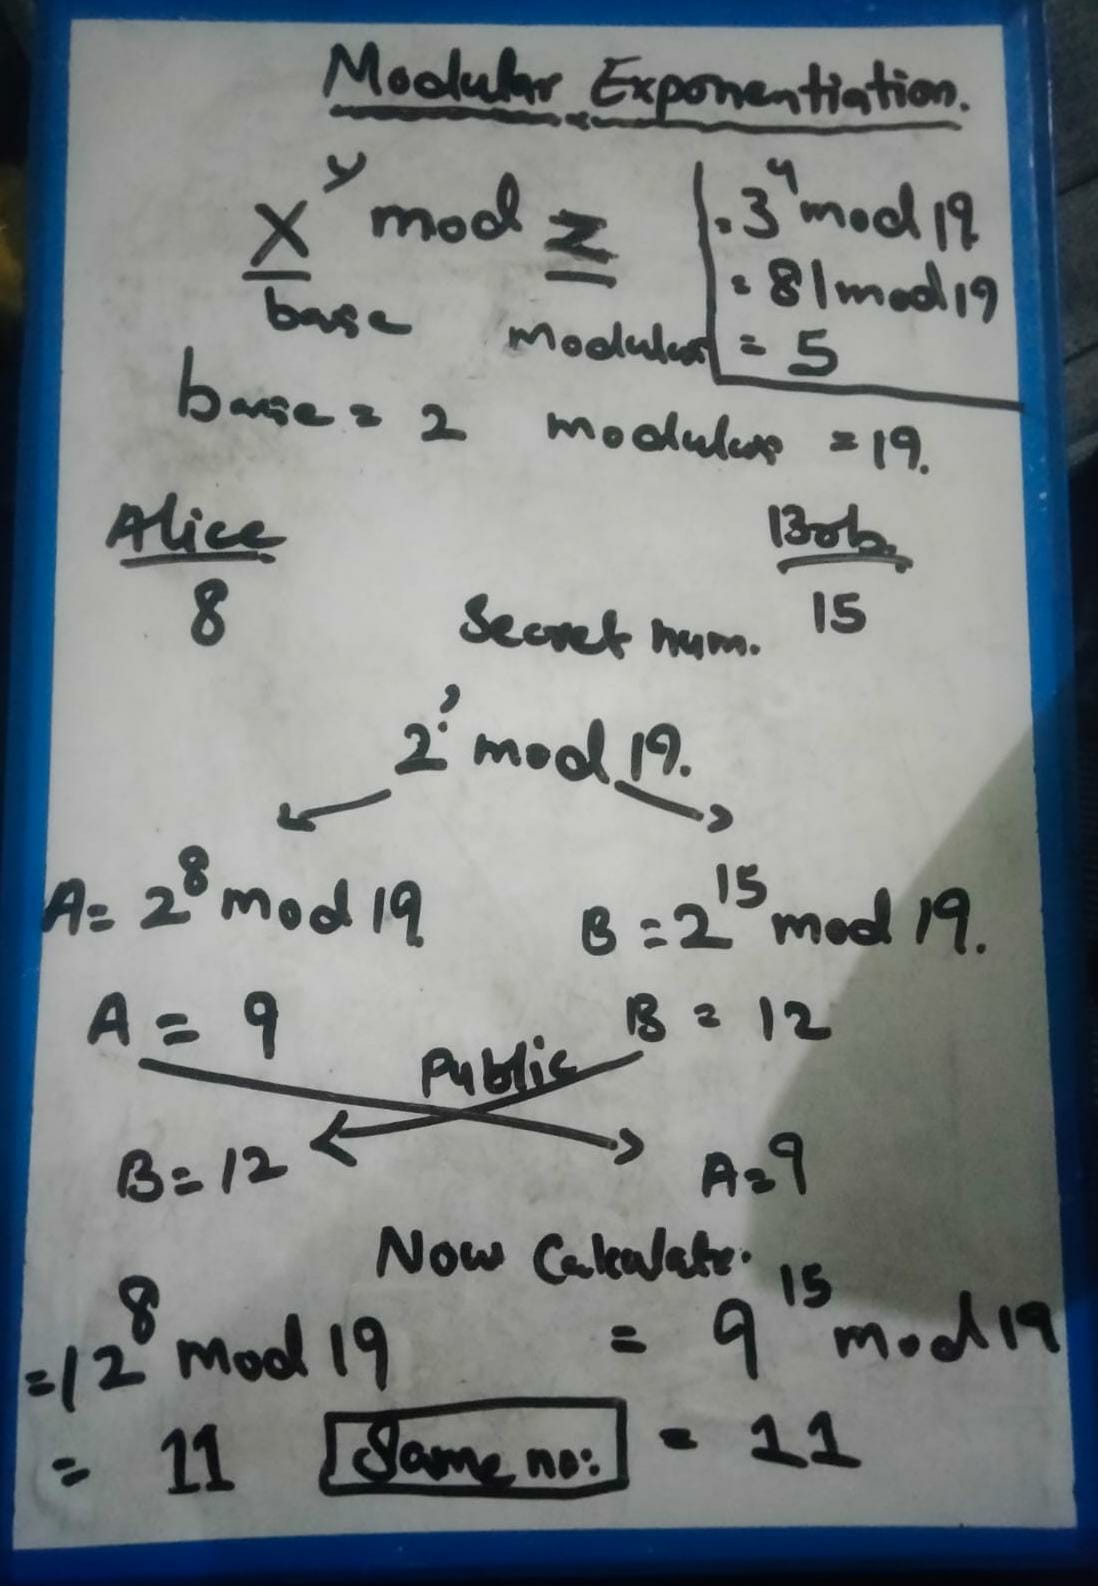 Modular Exponentiation.
x^y mod z
base
modulus
= 3^4 mod 19
= 81 mod 19
= 5
base = 2 modulus = 19.
Alice Bob.
8 Secret num. 15
2^? mod 19.
A = 2^8 mod 19 B = 2^15 mod 19.
A = 9 B = 12
Public
B = 12 A = 9
Now Calculate.
= 12^8 mod 19 = 9^15 mod 19
= 11 Same no: = 11